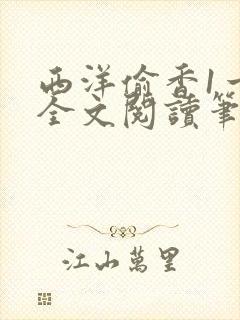 西洋偷香1一
全文閱讀筆
江山萬里